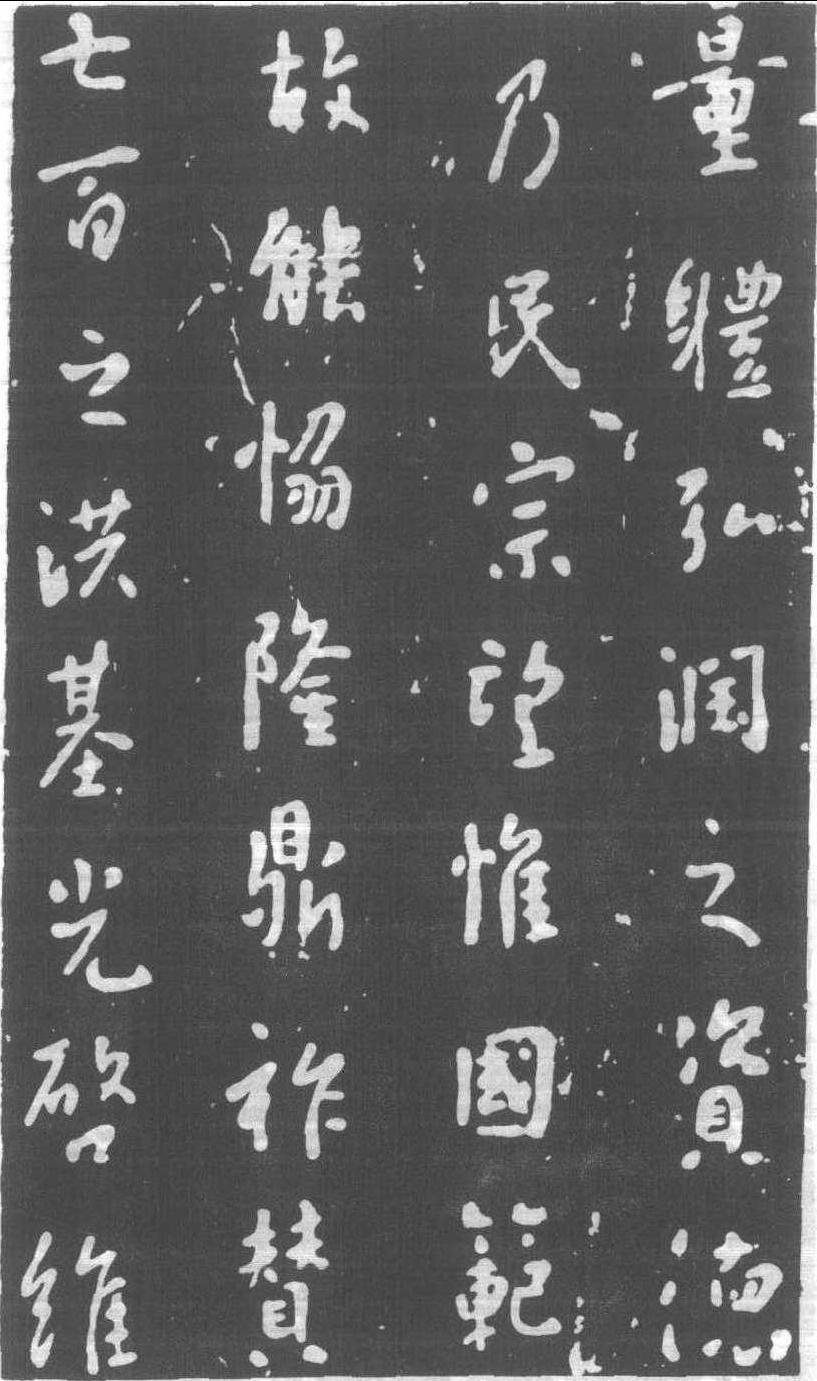 量體弘潤之資德
乃民宗望惟國範
故能協隆鼎祚贊
七百之洪基光啓維